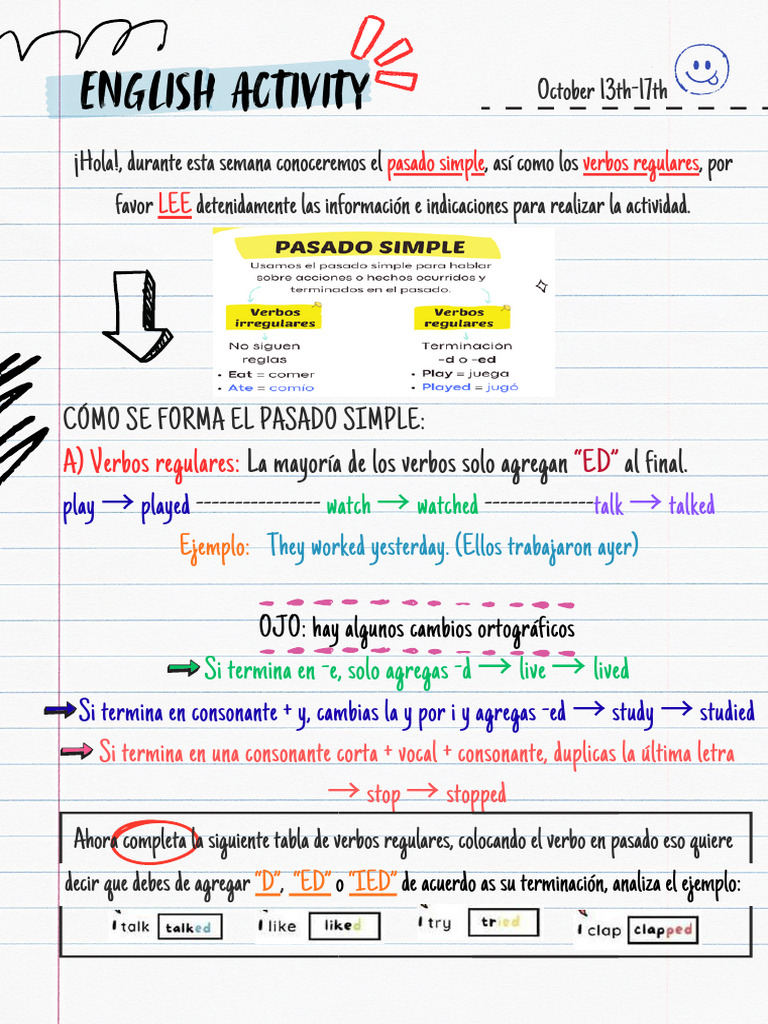 ENGLISH ACTIVITY
October 13th-17th
¡Hola!, durante esta semana conoceremos el pasado simple, así como los verbos regulares, por
favor LEE detenidamente las información e indicaciones para realizar la actividad.
PASADO SIMPLE
Usamos el pasado simple para hablar
sobre acciones o hechos ocurridos y
terminados en el pasado.
Verbos
irregulares
No siguen
reglas
• Eat = comer
• Ate = comío
Verbos
regulares
Terminación
-d o -ed
• Play = juega
• Played = jugó
CÓMO SE FORMA EL PASADO SIMPLE:
A) Verbos regulares: La mayoría de los verbos solo agregan “ED” al final.
play → played ---------------- watch → watched --------------talk → talked
Ejemplo: They worked yesterday. (Ellos trabajaron ayer)
OJO: hay algunos cambios ortográficos
Si termina en -e, solo agregas -d → live → lived
Si termina en consonante + y, cambias la y por i y agregas -ed → study → studied
Si termina en una consonante corta + vocal + consonante, duplicas la última letra
→ stop → stopped
Ahora completa la siguiente tabla de verbos regulares, colocando el verbo en pasado eso quiere
decir que debes de agregar “D”, “ED” o “IED” de acuerdo as su terminación, analiza el ejemplo:
I talk talked I like liked I try tried I clap clapped